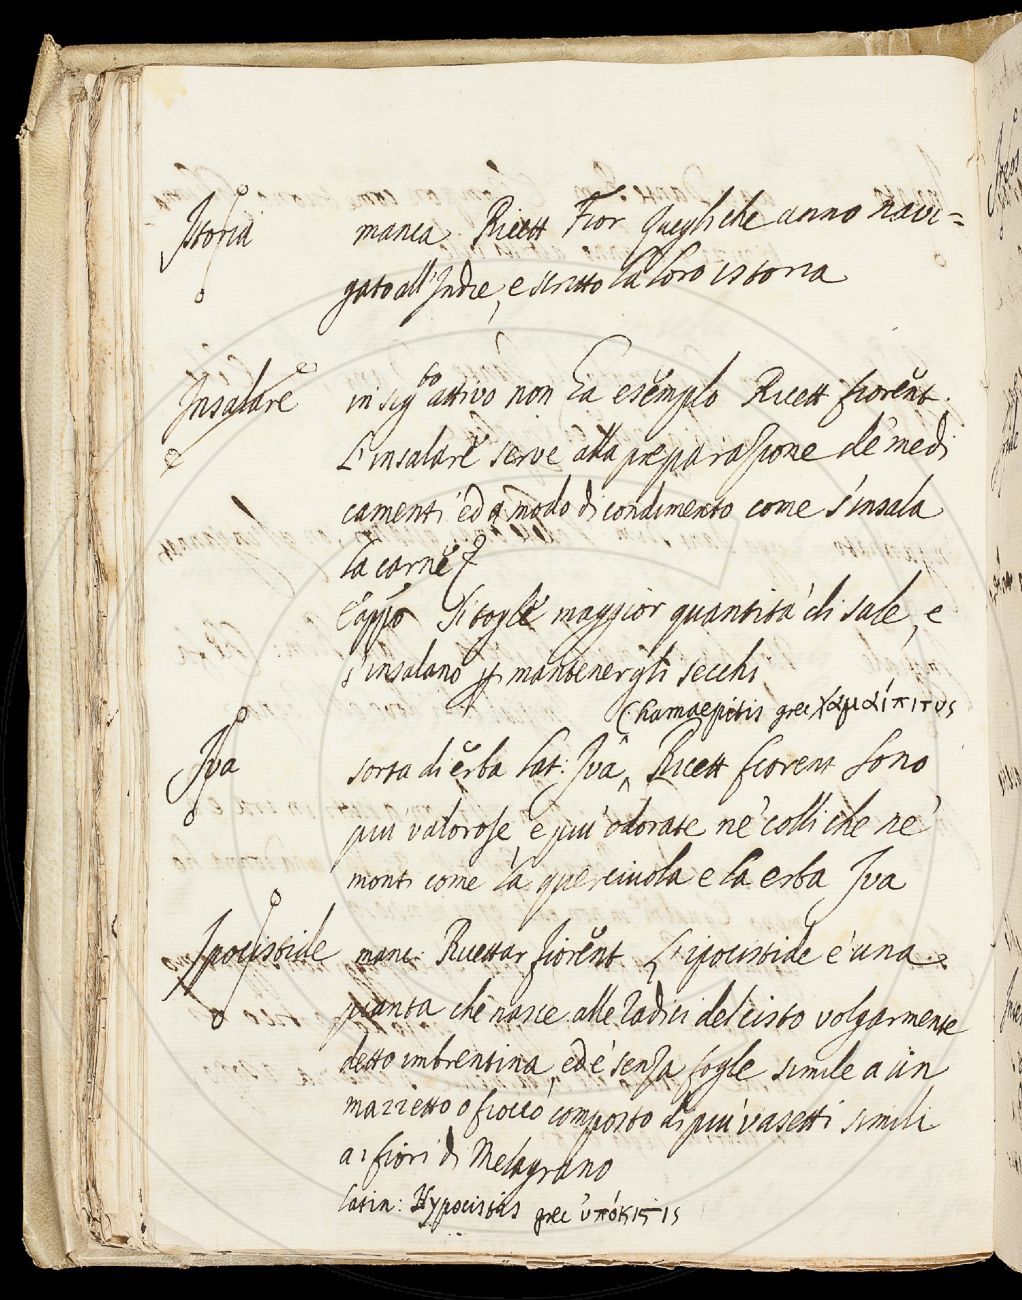 Istoria manca. Ricett Fior Quegli che anno navi=
gato all'Indie, e scritto la loro istoria
Insalare in sig.to attivo non ha esemplo Ricett fiorent.
L'insalare serve alla preparazione de' medi
camenti ed a modo di condimento come s'insala
la carne
e appo Si togle maggior quantità di sale, e
s'insalano p mantenergli secchi
Chamaepitis grec χαμαίπιτυς
Iva sorta di erba Lat: Iva ^ Ricett fiorent Sono
piu valorose, e piu odorate ne' colli che ne'
monti come la querciuola e la erba Iva
Ipocistide manc: Ricettar fiorent. L'ipocistide è una
pianta che nasce alle radici del cisto volgarmente
detto imbrentina, ed è senza fogle simile a un
mazzetto o fiocco composto di piu vasetti simili
ai fiori di Melagrano
latin: Hypocistis grec ὑπόκιστις